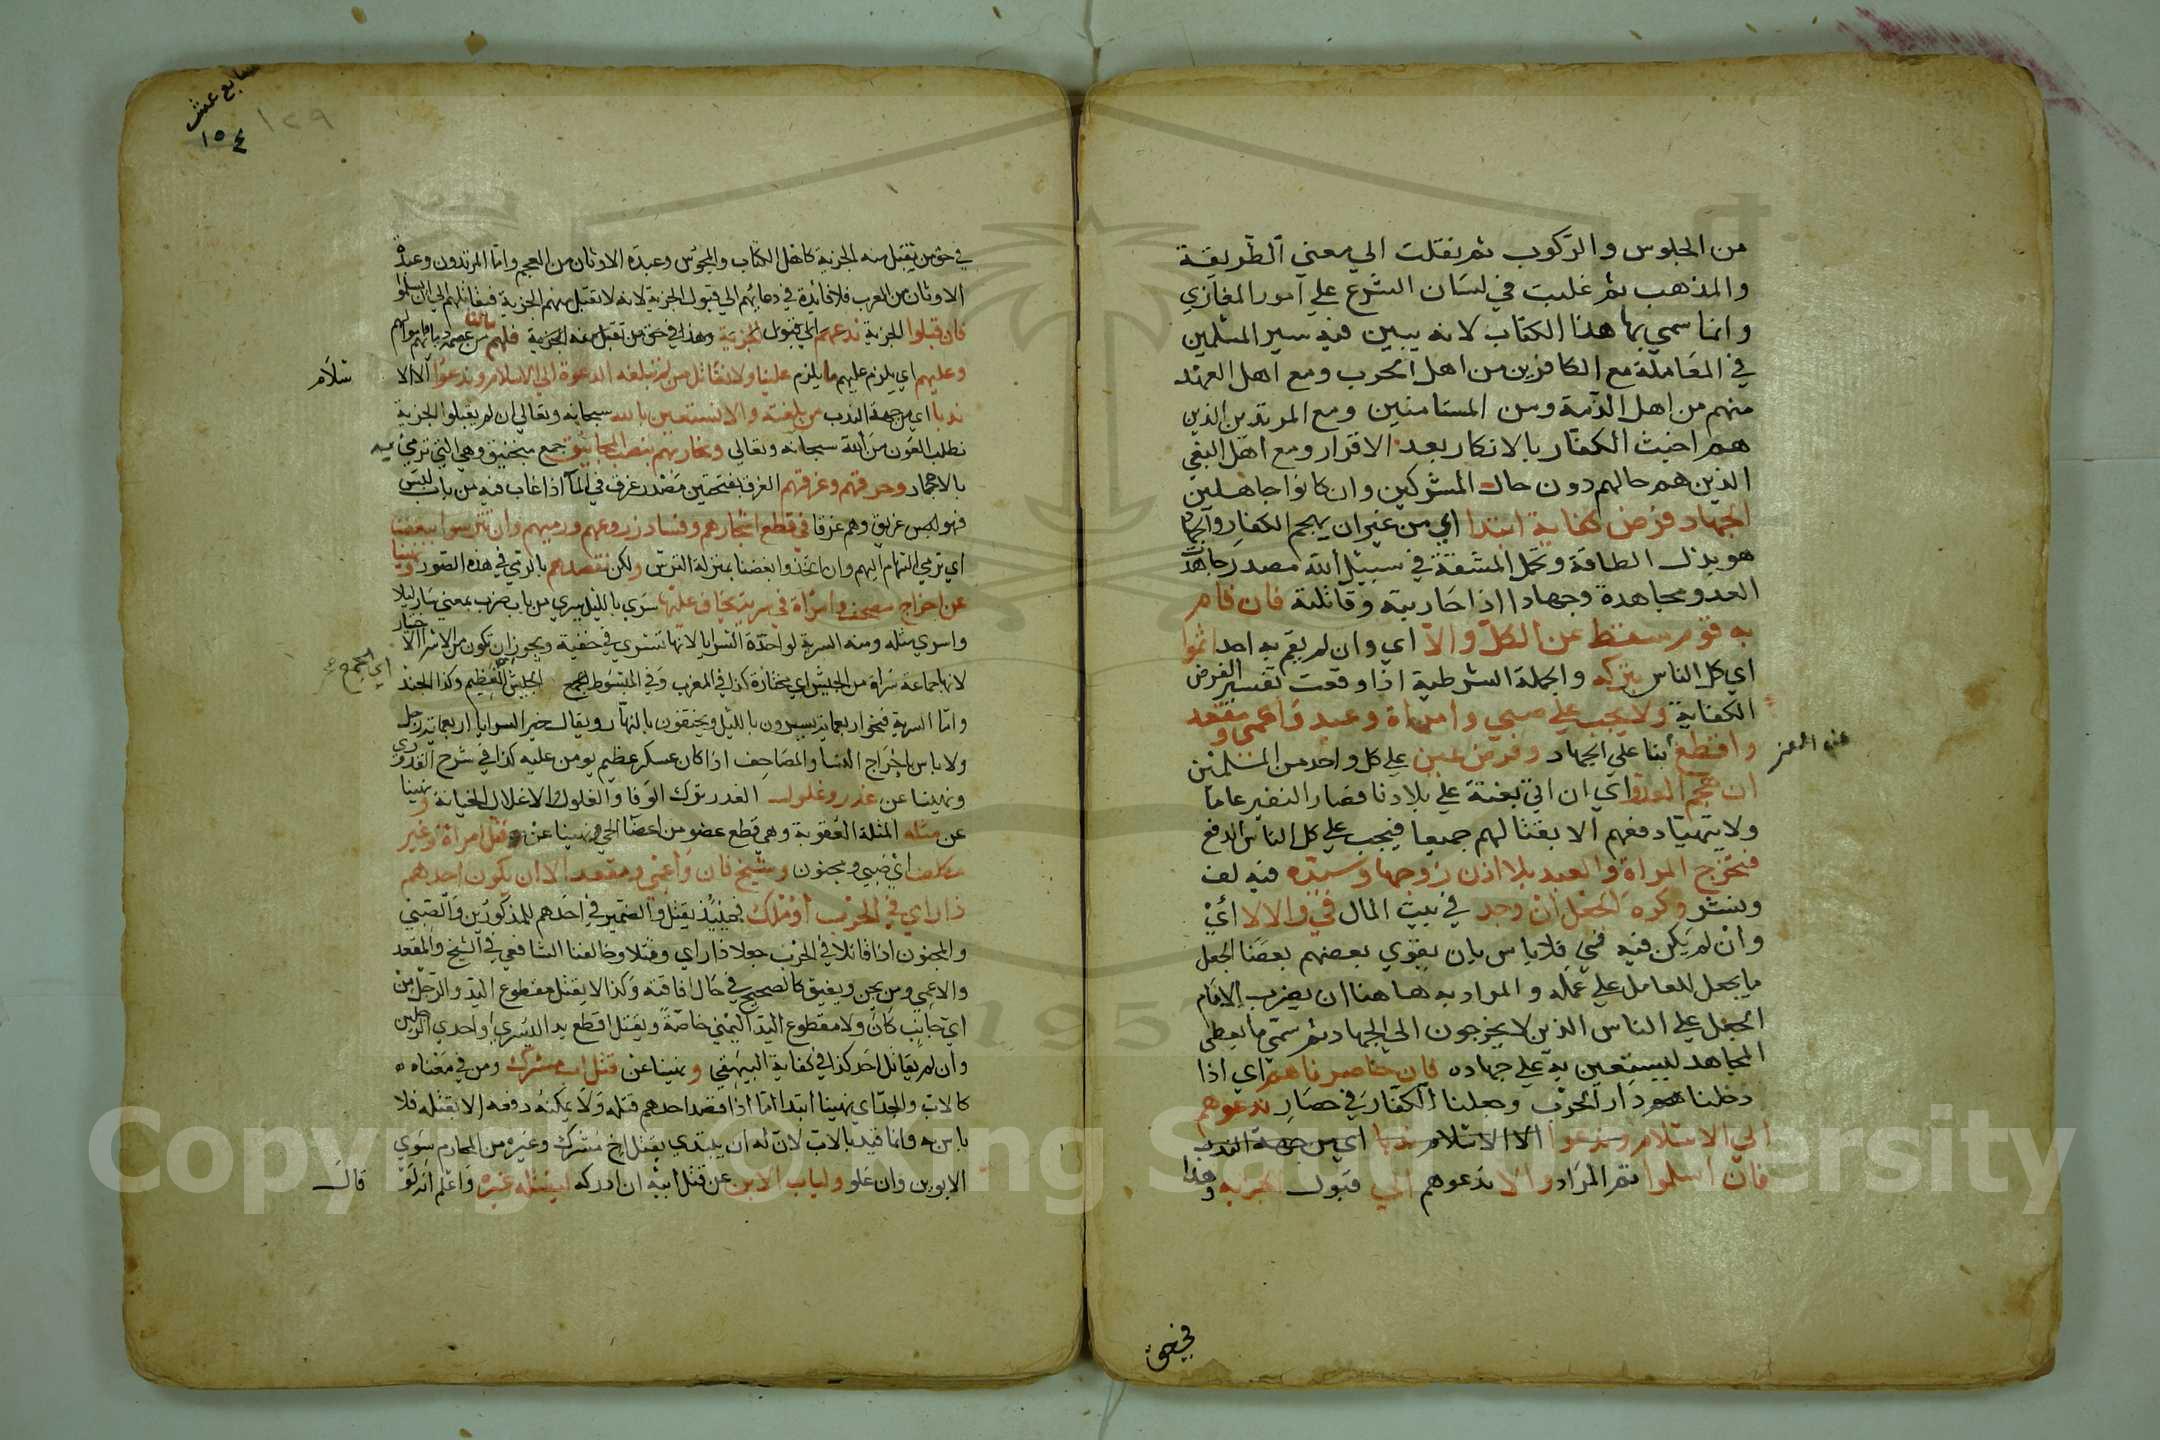 من الجلوس والركوب ثم نقلت الي معني الطريقة
والمذهب ثم غلبت في لسان الشرع علي امور المغازي
وانما سمي بها هذا الكتاب لانه يبين فيه سير المسلمين
في المعاملة مع الكافرين من اهل الحرب ومع اهل العهد
منهم من اهل الذمة ومن المستامنين ومع المرتدين الذين
هم اخبث الكفار بالانكار بعد الاقرار ومع اهل البغي
الذين هم حالهم دون حال المشركين وان كانوا جاهلين
الجهاد فرض كفاية ابتدا اي من غير ان يهجم الكفار والجهاد
هو بذل الطاقة وتحمل المشقة في سبيل الله مصدر جاهدت
العدو مجاهدة وجهادا اذا حاربته وقاتلته فان قام
به قوم سقط عن الكل والا اي وان لم يقم به احد اثموا
اي كل الناس بتركه والجملة الشرطية اذا وقعت تفسير الفرض
الكفاية ولا يجب علي صبي وامراة وعبد واعمي ومقعد
واقطع
بنا علي الجهاد وفرض عين علي كل واحد من المسلمين
ان هجم العدو اي ان اتي بغتة علي بلادنا فصار النفير عاما
ولا يتهيا دفعهم الا بقتالهم جميعا فيجب علي كل الناس الدفع
فتخرج المراة والعبد بلا اذن زوجها وسيده فيه لف
ونشر وكره الجعل ان وجد في بيت المال في والا لا اي
وان لم يكن فيه في فلا باس بان يقوي بعضهم بعضا الجعل
ما يجعل للعامل علي عمله والمراد به هاهنا ان يضرب الامام
الجعل علي الناس الذين لا يخرجون الي الجهاد ثم سمي ما يعطي
المجاهد ليستعين به علي جهاده فان حاصرناهم اي اذا
دخلنا دار الحرب وجعلنا الكفار في حصار ندعوهم
الي الاسلام وندعوا الا الاسلام ندبا اي من جهة الندب
فان اسلموا تم المراد والا ندعوهم الي قبول الجزية وهذا
في حق
سابع عشر
١٥٤ ١٢٩
في حق من تقبل منه الجزية كاهل الكتاب والمجوس وعبدة الاوثان من العجم واما المرتدون وعبدة
الاوثان من العرب فلا فائدة في دعائهم الي قبول الجزية لانه لا تقبل منهم الجزية فيقاتلهم الي ان يسلموا
فان قبلوا الجزية ندعهم الي قبول الجزية وهذا في حق من تقبل منه الجزية فلهم مالنا من عصمة دمائهم واموالهم
وعليهم اي يلزم عليهم ما يلزم علينا ولا نقاتل من لم تبلغه الدعوة الي الاسلام وندعوا الا الا
سلام
ندبا اي من جهة الندب من بلغته والا نستعين بالله سبحانه وتعالي ان لم يقبلوا الجزية
نطلب العون من الله سبحانه وتعالي ونحاربهم بنصب المجانيق جمع منجنيق وهي التي ترمي
بالاحجار وحرقهم وغرقهم الغرق بفتحتين مصدر غرق في الماء اذا غاب فيه من باب لبس
فهو غريق وهم غرقا في قطع اشجارهم وفساد زروعهم ورميهم وان تترسوا ببعضنا
اي ترمي السهام اليهم وان اتخذوا بعضنا بمنزلة الترس ولكن نقصدهم بالرمي في هذه الصور ونهينا
عن اخراج مصحف وامراة في سرية يخاف عليها سري بالليل يسري من باب ضرب بمعني سار ليلا
واسري مثله ومنه السرية لواحدة السرايا لانها تسري في خفية ويجوز ان تكون من الاسرا الاختيار
لانها جماعة سراة من الجيش اي مختارة كذا في المغرب وفي المبسوط الجيش العظيم وكذا الجند
واما السرية فنحو اربعماية يسيرون بالليل ويختفون بالنهار ويقال خير السرايا اربعماية رجل
ولا باس باخراج النسا والمصاحف اذا كان عسكر عظيم يومن عليه كذا في شرح القدوري
ونهينا عن غدر وغلول الغدر ترك الوفا والغلول والاغلال الخيانة ونهينا
عن مثلة المثلة العقوبة وهي قطع عضو من اعضا الحي ونهينا عن قتل امراة وغير
مكلف اي صبي ومجنون وشيخ فان واعمي ومقعد الا ان يكون احدهم
ذا راي في الحرب او ملك فحينئذ يقتل والضمير في احدهم للمذكورين والصبي
والمجنون اذا قاتلا في الحرب جعلا ذا راي وقتلا وخالفنا الشافعي في الشيخ والمقعد
والاعمي ومن يجن ويفيق كالصحيح في حال افاقته وكذا لا يقتل مقطوع اليد والرجل من
اي جانب كان ولا مقطوع اليد اليمني خاصة ويقتل اقطع يد اليسري او احدي الرجلين
وان لم يقاتل احد كذا في كفاية البيهقي ونهينا عن قتل اب مشرك ومن في معناه
كالاب والجد اي نهينا ابتدا اما اذا قصد احدهم قتله ولا يمكنه دفعه الا بقتله فلا
باس به وانما قيد بالاب لان له ان يبتدي بقتل اخ مشرك وغيره من المحارم سوي
الابوين وان علو ولياب الابن عن قتل ابيه ان ادركه ليقتله غيره واعلم انه لو
قال
Copyright © King Saud University
1957